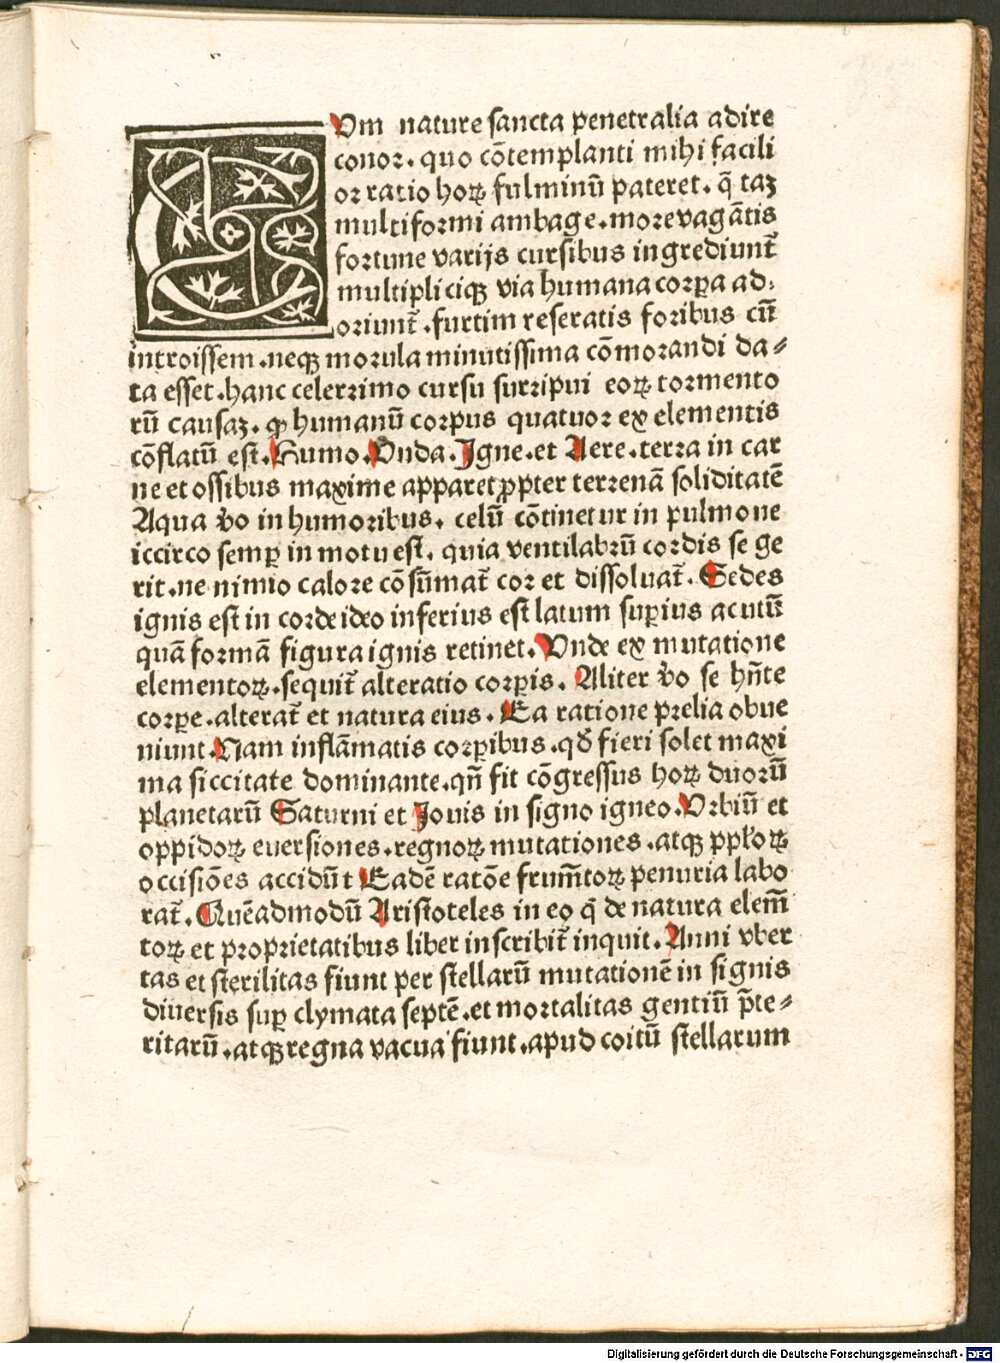 CUm nature sancta penetralia adire
conor. quo cõtemplanti mihi facili
or ratio hoꝝ fulminũ pateret. q̃ taꝫ
multiformi ambage. more vagãtis
fortune varijs cursibus ingrediunt̃
multipliciqꝫ via humana corꝑa ad:
oriunt̃. furtim reseratis foribus cũ
introissem. neqꝫ morula minutissima cõmorandi da⸗
ta esset. hanc celerrimo cursu surripui eoꝝ tormento
rũ causaꝫ. ꝙ humanũ corpus quatuor ex elementis
cõflatũ est. Humo. Unda. Igne. et Aere. terra in car
ne et ossibus maxime apparet ꝓpter terrenã soliditatẽ
Aqua v̆o in humoribus. celũ cõtinetur in pulmone
iccirco semꝑ in motu est. quia ventilabrũ cordis se ge
rit. ne nimio calore cõsũmat̃ cor et dissoluat̃. Sedes
ignis est in corde ideo inferius est latum suꝑius acutũ
quã formã figura ignis retinet. Unde ex mutatione
elementoꝝ. sequit̃ alteratio corꝑis. Aliter v̆o se hñte
corꝑe. alterat̃ et natura eius. Ea ratione prelia obue
niunt. Nam inflãmatis corꝑibus. qđ fieri solet maxi
ma siccitate dominante. qñ fit cõgressus hoꝝ duorũ
planetarũ Saturni et Jouis in signo igneo. Urbiũ et
oppidoꝝ euersiones. regnoꝝ mutationes. atqꝫ ppłoꝝ
occisiões accidũt Eadẽ ratõe frum̃toꝝ penuria labo
rat̃. Quẽadmodũ Aristoteles in eo q̃ de natura elem̃
toꝝ et proprietatibus liber inscribit̃ inquit. Anni vber
tas et sterilitas fiunt per stellarũ mutationẽ in signis
diuersis suꝑ clymata septẽ. et mortalitas gentiũ p̃te⸗
ritarũ. atqꝫ regna vacua fiunt. apud coitũ stellarum
Digitalisierung gefördert durch die Deutsche Forschungsgemeinschaft - DFG